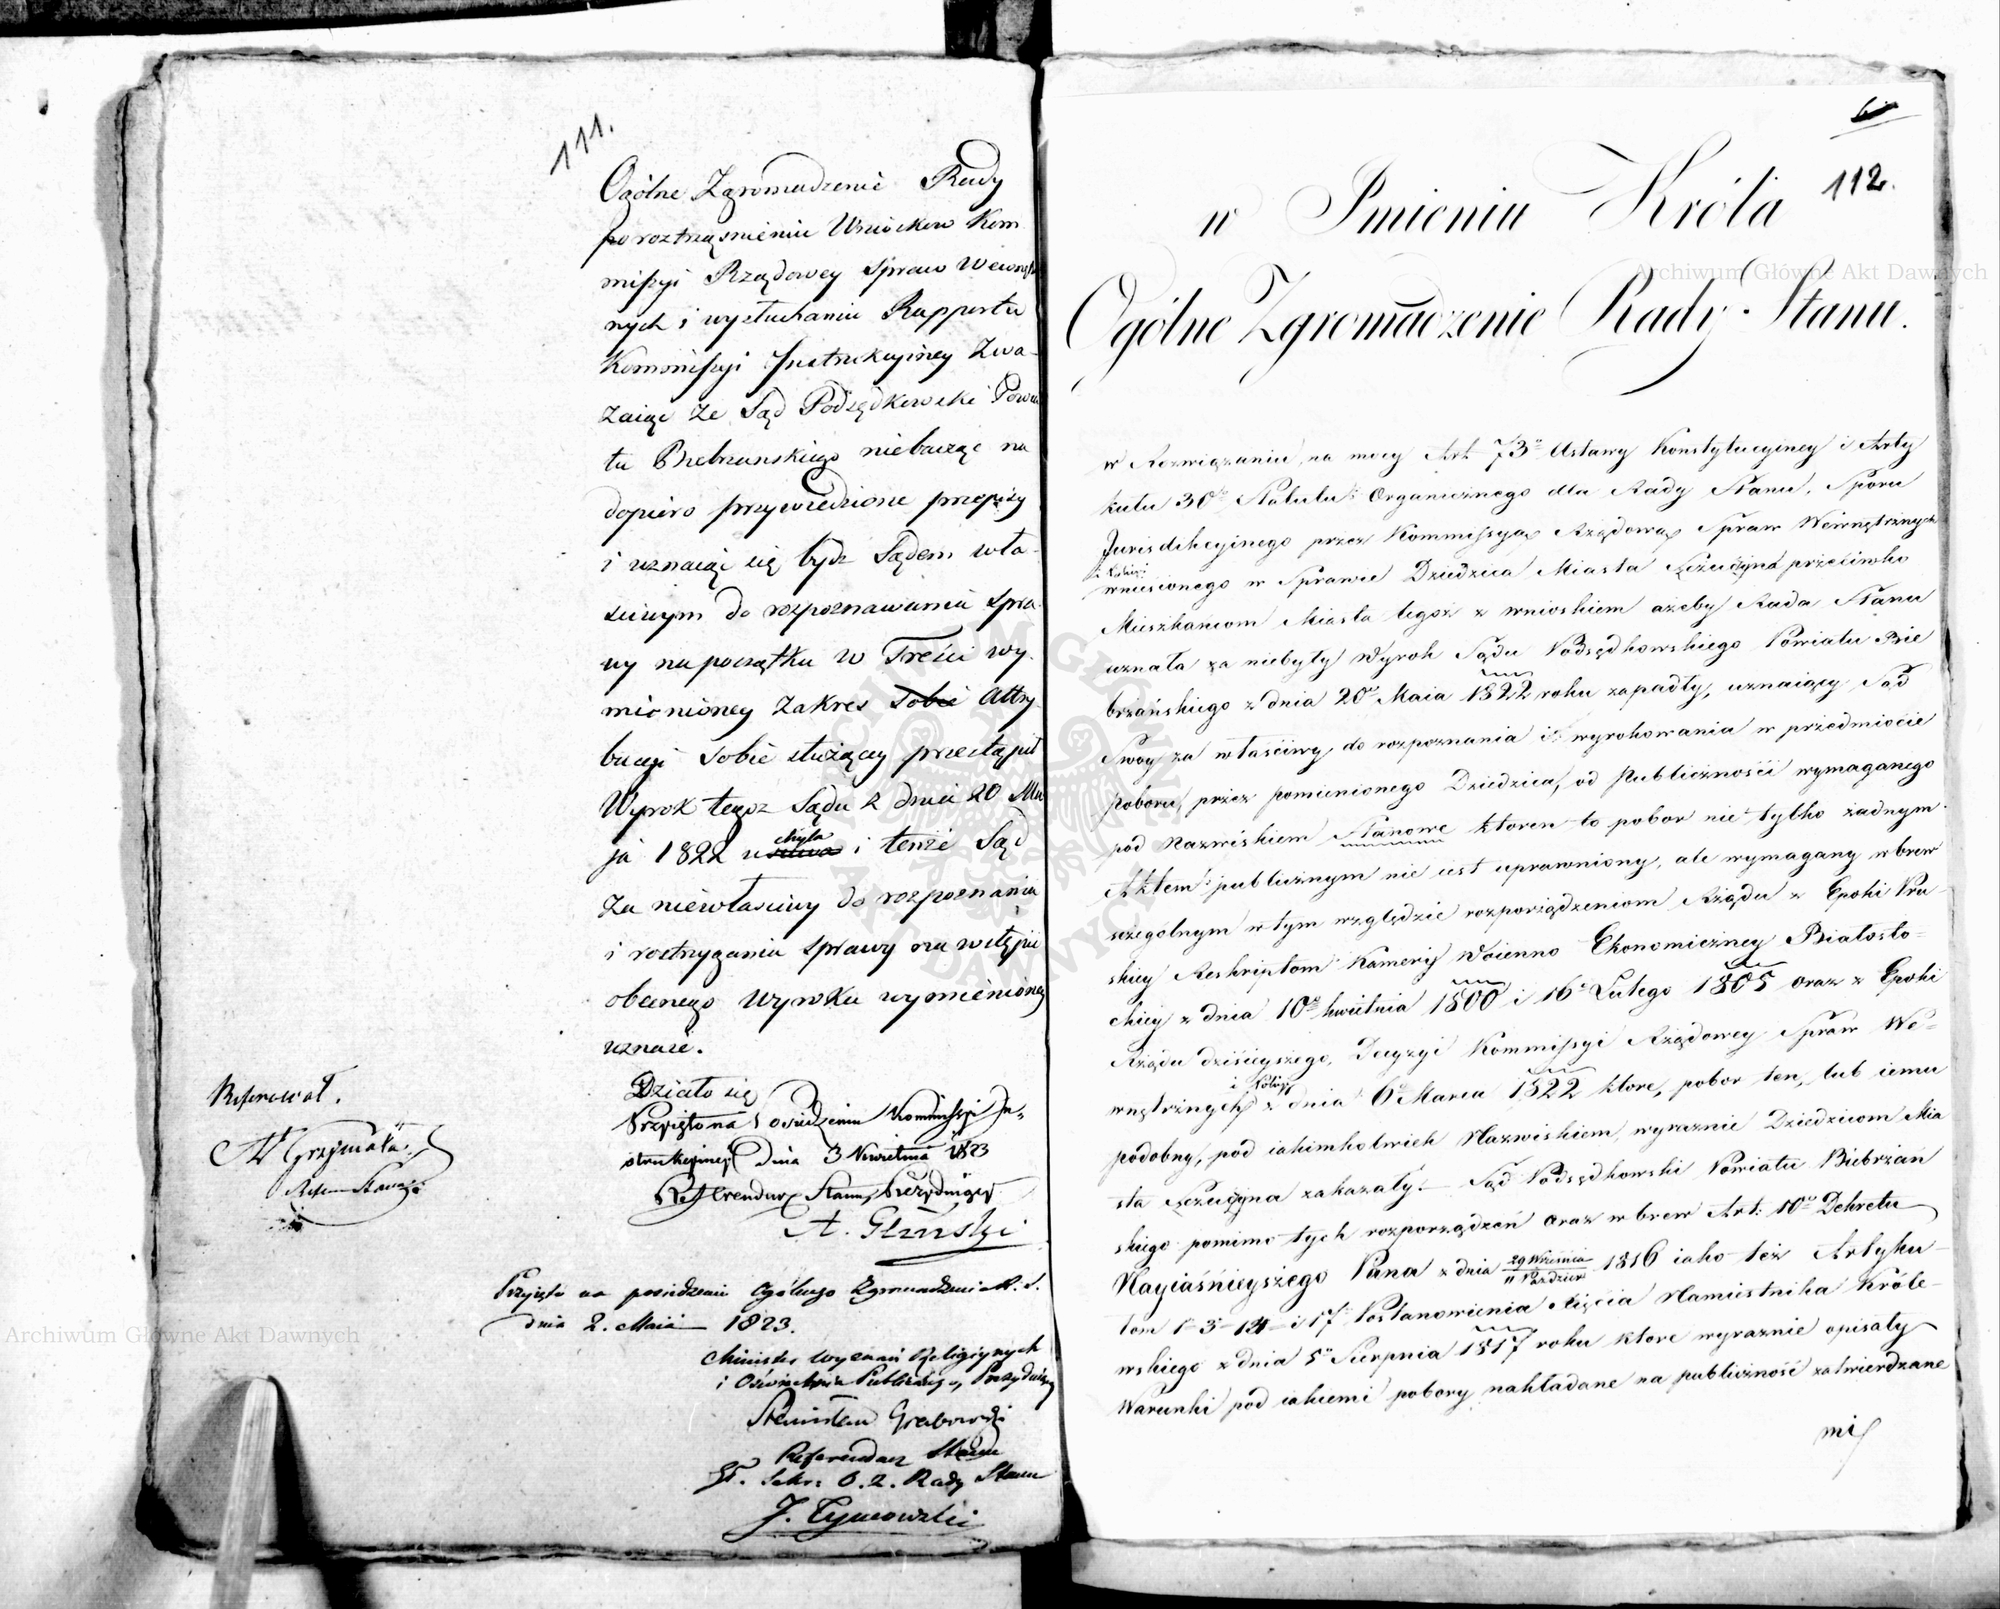 111.
Ogólne Zgromadzenie Rady
po roztrząśnieniu Wniosków Kom
missyi Rządowey Spraw Wewnętrz
nych i wysłuchaniu Rapportu
Kommissyi Instrukcyiney zwa-
żaiąc że Sąd Podsędkowski Powia
tu Biebrzanskiego niebacząc na
dopiero przywiedzione przepisy
i uznaiąc się bydź Sądem wła-
sciwym do rozpoznawania spra
wy na początku w Treści wy-
mienioney zakres Sobie attry-
bucyi sobie służący przestąpił
Wyrok tegoż Sądu z dnia 20 Ma
ja 1822 uchyla i tenże Sąd
za niewłasciwy do rozpoznania
i rostrzygania sprawy na wstępie
obecnego Wyroku wymienioney
uznaie.
Działo się
Przyięto na Posiedzeniu Kommissyi In-
strukcyiney dnia 3 Kwietnia 1823
Referendarz Stanu Prezyduiący
A. Gliński
Referował.
Grzymała
Refer. Stanu
Przyięto na posiedzeniu Ogólnego Zgromadzenia R. S.
dnia 2. Maia 1823.
Minister Wyznań Religiynych
i Oświecenia Publicznego, Prezyduiący
Stanisław Grabowski
Referendarz Stanu
Sekr: O. Z. Rady Stanu
J. Tymowski
112.
w Imieniu Króla
Ogólne Zgromadzenie Rady Stanu.
w Rozwiązaniu, na mocy Art. 73º Ustawy Konstytucyiney i Arty
kułu 30º Statutu Organicznego dla Rady Stanu, Sporu
Jurisdikcyinego przez Kommissyą Rządową Spraw Wewnętrznych
i Policyi
wniesionego w Sprawie Dziedzica Miasta Szczuczyna przeciwko
Mieszkańcom Miasta tegoż z wnioskiem ażeby Rada Stanu
uznała za niebyły Wyrok Sądu Podsędkowskiego Powiatu Bie
brzańskiego z dnia 20º Maia 1822 roku zapadły, uznaiący Sąd
Swóy za właściwy do rozpoznania i wyrokowania w przedmiocie
poboru, przez pomienionego Dziedzica, od Publiczności wymaganego
pod Nazwiskiem Stanowe któren to pobor nie tylko żadnym
Aktem publicznym nie iest uprawniony, ale wymagany wbrew
szczegolnym w tym względzie rozporządzeniom Rządu z Epoki Pru
skiey Reskryptom Kamery Woienno Ekonomiczney Białosto-
ckiey z dnia 10º kwietnia 1800 i 16º Lutego 1805 oraz z Epoki
Rządu dzisieyszego, Decyzyi Kommissyi Rządowey Spraw We-
wnętrznych i Policyi z dnia 6º Marca 1822 które, pobor ten, lub iemu
podobny, pod iakimkolwiek Nazwiskiem, wyraznie Dziedzicom Mia
sta Szczuczyna zakazały. — Sąd Podsędkowski Powiatu Biebrzań
skiego pomimo tych rozporządzeń oraz wbrew Art: 10º Dekretu
Nayiaśnieyszego Pana z dnia 29 Wrzesnia / 11 Pazdzier 1816 iako też Artyku-
łom 1-3-14 i 17º Postanowienia Xięcia Namiestnika Króle-
wskiego z dnia 5º Sierpnia 1817 roku które wyraznie opisały
Warunki pod iakiemi pobory nakładane na publiczność zatwierdzane